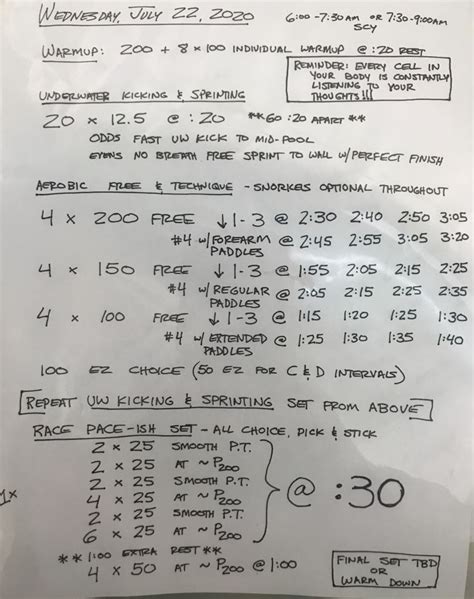 WEDNESDAY, JULY 22, 2020
6:00 - 7:30 AM OR 7:30 - 9:00AM
SCY
WARMUP: 200 + 8 x 100 INDIVIDUAL WARMUP @ :20 REST
REMINDER: EVERY CELL IN
YOUR BODY IS CONSTANTLY
LISTENING TO YOUR
THOUGHTS!!!
UNDERWATER KICKING & SPRINTING
20 x 12.5 @ :20 **GO :20 APART**
ODDS FAST UW KICK TO MID-POOL
EVENS NO BREATH FREE SPRINT TO WALL W/ PERFECT FINISH
AEROBIC FREE & TECHNIQUE - SNORKELS OPTIONAL THROUGHOUT
4 x 200 FREE ↓1-3 @ 2:30 2:40 2:50 3:05
#4 W/ FOREARM PADDLES @ 2:45 2:55 3:05 3:20
4 x 150 FREE ↓1-3 @ 1:55 2:05 2:15 2:25
#4 W/ REGULAR PADDLES @ 2:05 2:15 2:25 2:35
4 x 100 FREE ↓1-3 @ 1:15 1:20 1:25 1:30
#4 W/ EXTENDED PADDLES @ 1:25 1:30 1:35 1:40
100 EZ CHOICE (50 EZ FOR C & D INTERVALS)
REPEAT UW KICKING & SPRINTING SET FROM ABOVE
RACE PACE-ISH SET - ALL CHOICE, PICK & STICK
2 x 25 SMOOTH P.T.
2 x 25 AT ~ P200
2 x 25 SMOOTH P.T.
1x 4 x 25 AT ~ P200 @ :30
2 x 25 SMOOTH P.T.
6 x 25 AT ~ P200
** 1:00 EXTRA REST **
4 x 50 AT ~ P200 @ 1:00
FINAL SET TBD
OR
WARM DOWN